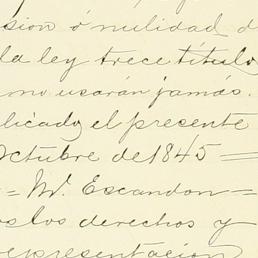 sion ó nulidad d
la ley trece título
no usarán jamás.
licado el presente
Octubre de 1845 =
= M. Escandon =
os los derechos y
representación